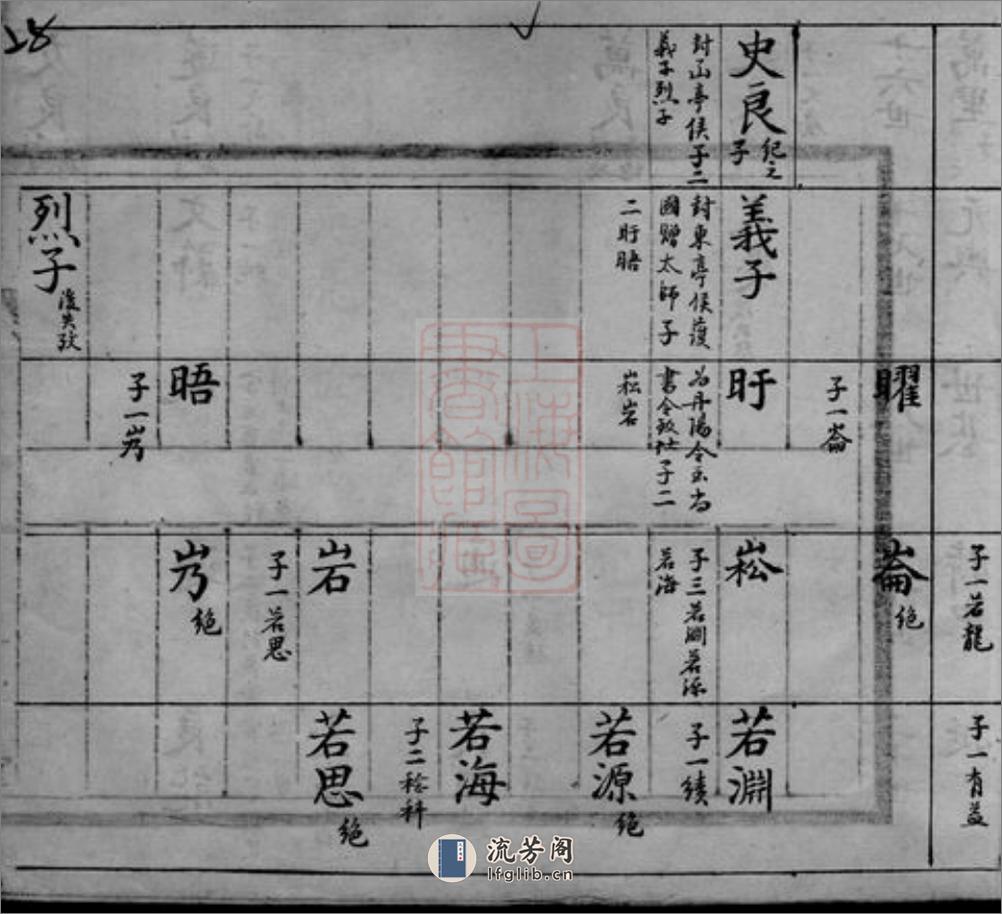 28
史良
紀之
子
封函亭侯子二
義子烈子
義子
封東亭侯護
國贈太師子
二盱晤
烈子
後失攷
曜
子一崙
盱
為丹陽令
書令致仕子二
崧岩
晤
子一岃
子一若龍
崙
絕
崧
子三若淵若源
若海
岩
子一若思
岃
絕
子一有益
若淵
子一績
若源
絕
若海
子二稔科
若思
絕
上海圖書館藏
流芳阁
lfglib.cn